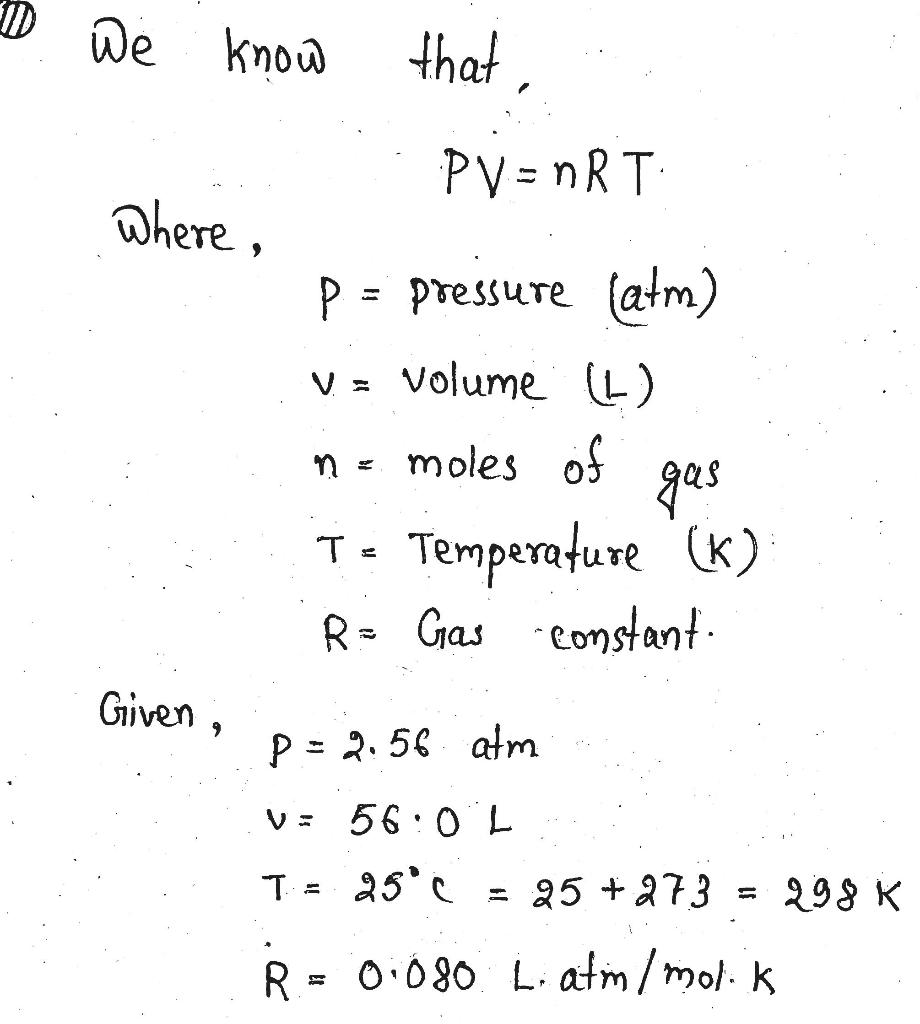 We know that,
PV = nRT.
Where,
P = pressure (atm)
V = volume (L)
n = moles of gas
T = Temperature (K)
R = Gas constant.
Given,
P = 2.56 atm
V = 56.0 L
T = 25°C = 25 + 273 = 298 K
R = 0.080 L. atm/mol. K